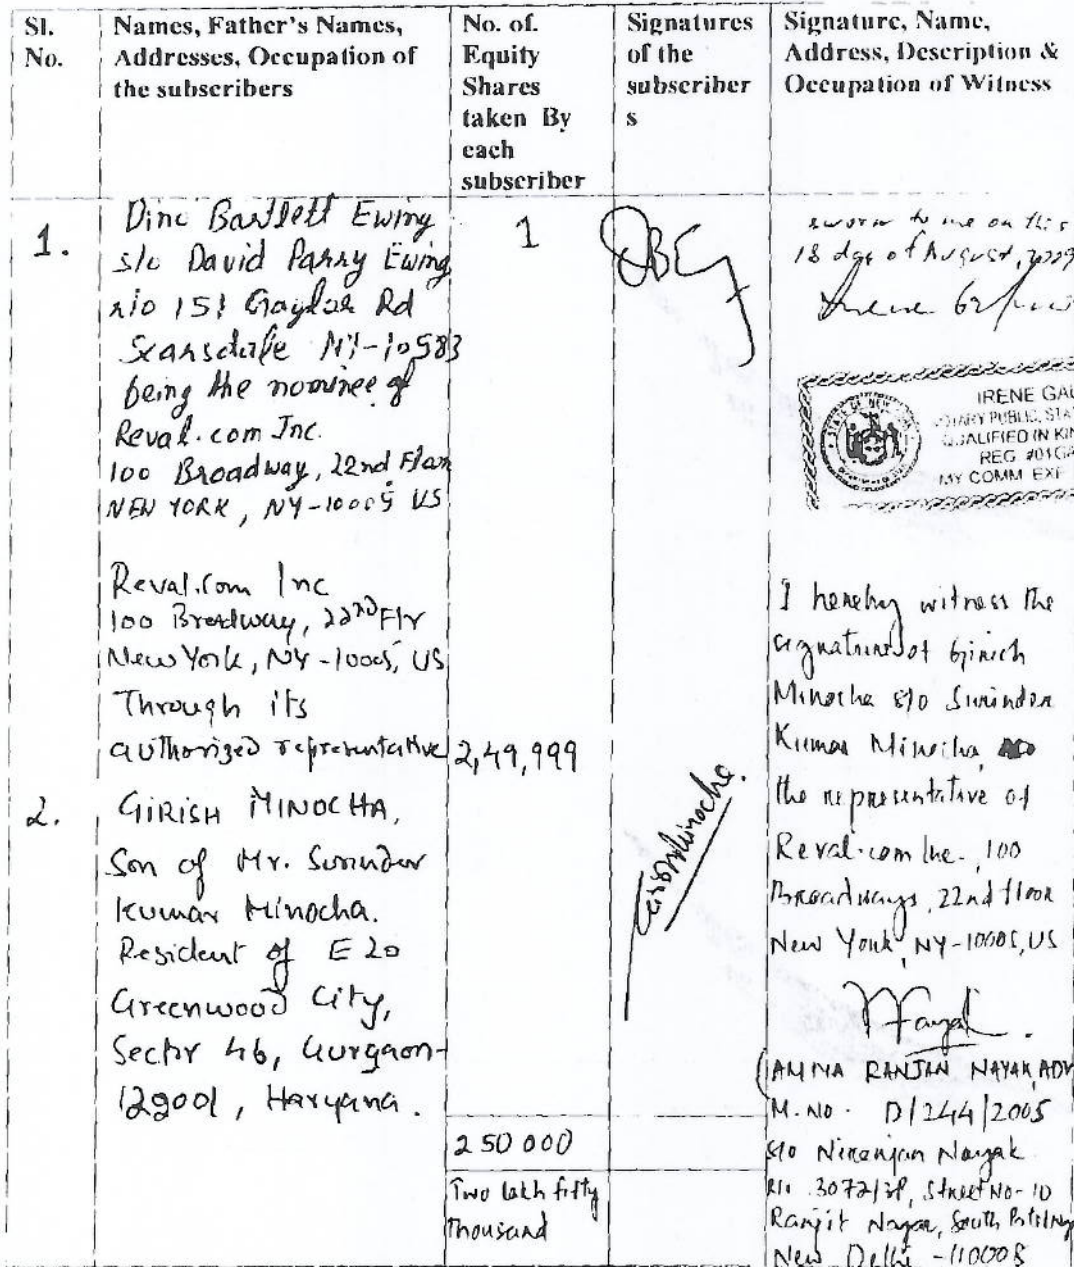 Sl.
No.
Names, Father's Names,
Addresses, Occupation of
the subscribers
No. of.
Equity
Shares
taken By
each
subscriber
Signatures
of the
subscriber
s
Signature, Name,
Address, Description &
Occupation of Witness
1.
Dino Bartlett Ewing
s/o David Parry Ewing
r/o 151 Gaylor Rd
Scarsdale NY-10583
being the nominee of
Reval.com Inc.
100 Broadway, 22nd Floor
NEW YORK, NY-10005 US
1
DBE
sworn to me on this
18 day of August, 2009
Irene
IRENE
NOTARY PUBLIC,
QUALIFIED IN
REG #01GA
MY COMM EXP
STATE OF NEW YORK
Reval.com Inc
100 Broadway, 22nd Flr
New York, NY-10005, US
Through its
authorized representative
2,49,999
2.
GIRISH MINOCHA,
Son of Mr. Surinder
Kumar Minocha.
Resident of E 20
Greenwood City,
Sector 46, Gurgaon-
122001, Haryana.
Girish Minocha.
I hereby witness the
signature of Girish
Minocha s/o Surinder
Kumar Minocha,
the representative of
Reval.com Inc., 100
Broadways, 22nd floor
New York, NY-10005, US
Nayak.
(AMIYA RANJAN NAYAK, ADV
M. No. D/244/2005
s/o Niranjan Nayak
R/o 3072/ Street No-10
Ranjit Nagar, South Patel Nag
New Delhi -110008
250 000
Two lakh fifty
thousand